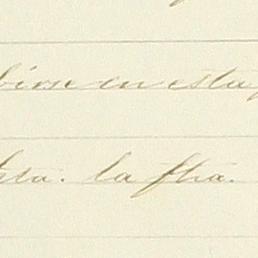 birse en esta
sta. la fha.